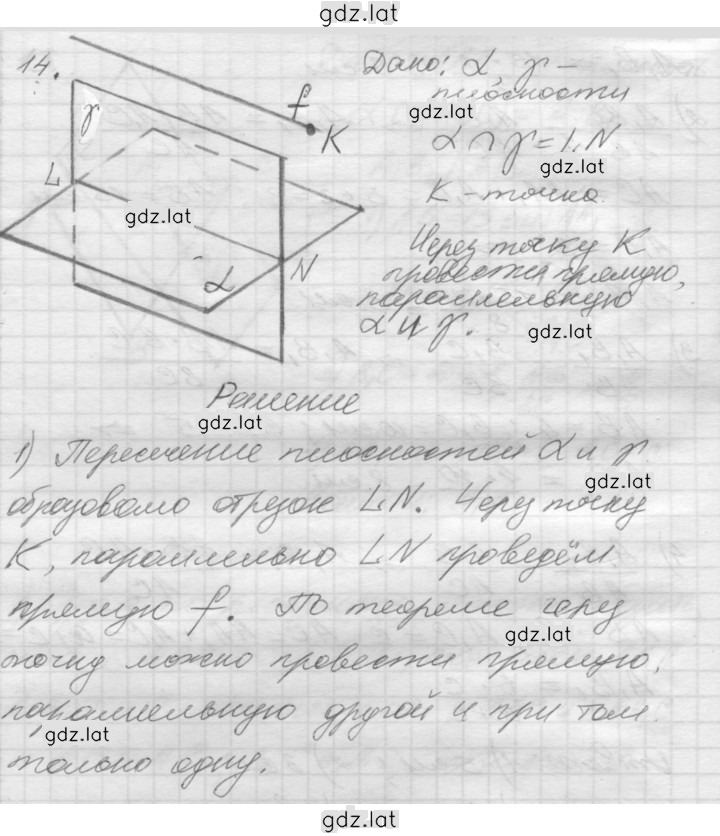 gdz.lat
14.
Дано: α, γ –
плоскости
gdz.lat
α ∩ γ = LN.
gdz.lat
K - точка.
Через точку K
провести прямую,
параллельную
α и γ.
gdz.lat
f
K
γ
L
gdz.lat
α
N
Решение
gdz.lat
1) Пересечение плоскостей α и γ
gdz.lat
образовало отрезок LN. Через точку
K, параллельно LN проведём
прямую f. По теореме через
gdz.lat
точку можно провести прямую,
параллельную другой и при том
gdz.lat
только одну.
gdz.lat